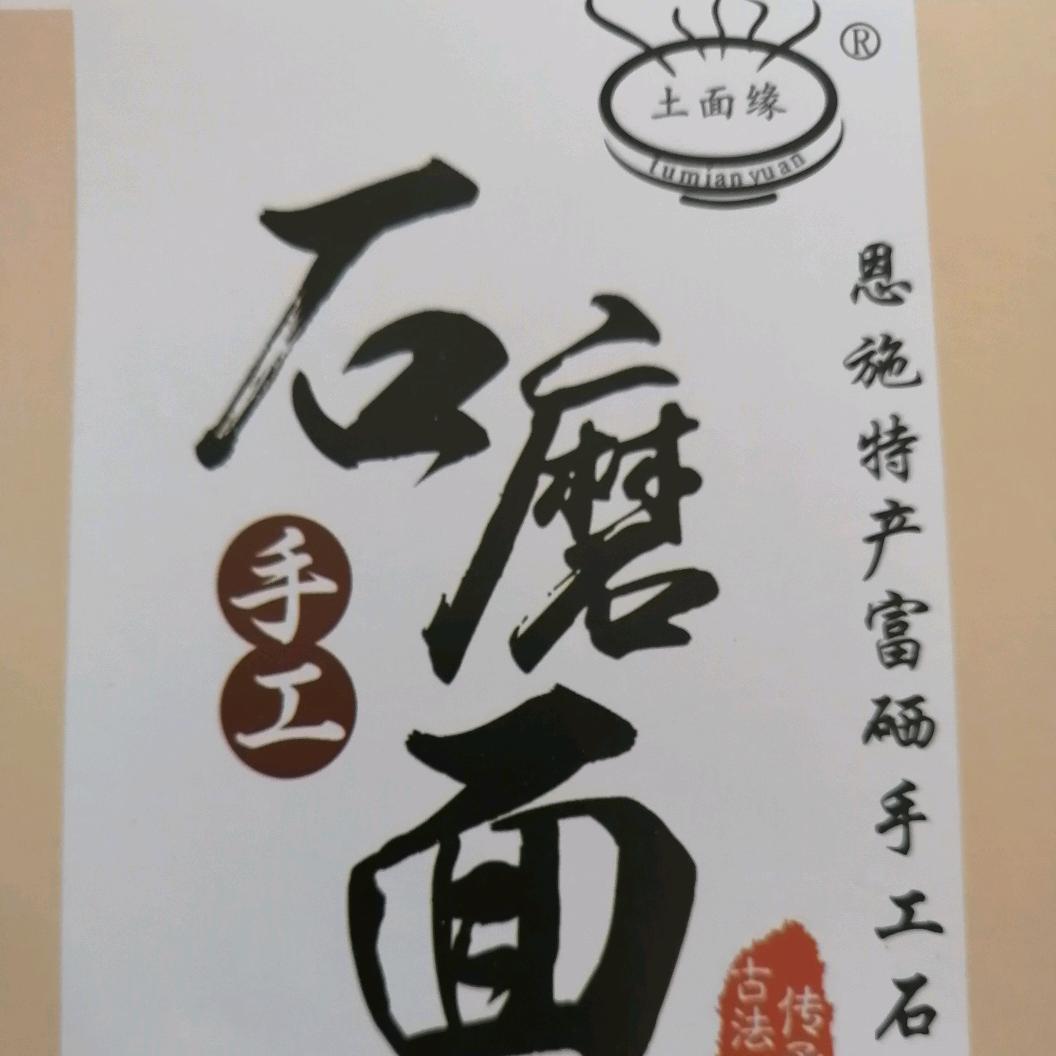 土面缘
tumianyuan
®
石磨面
手工
恩施特产富硒手工石
古法
传